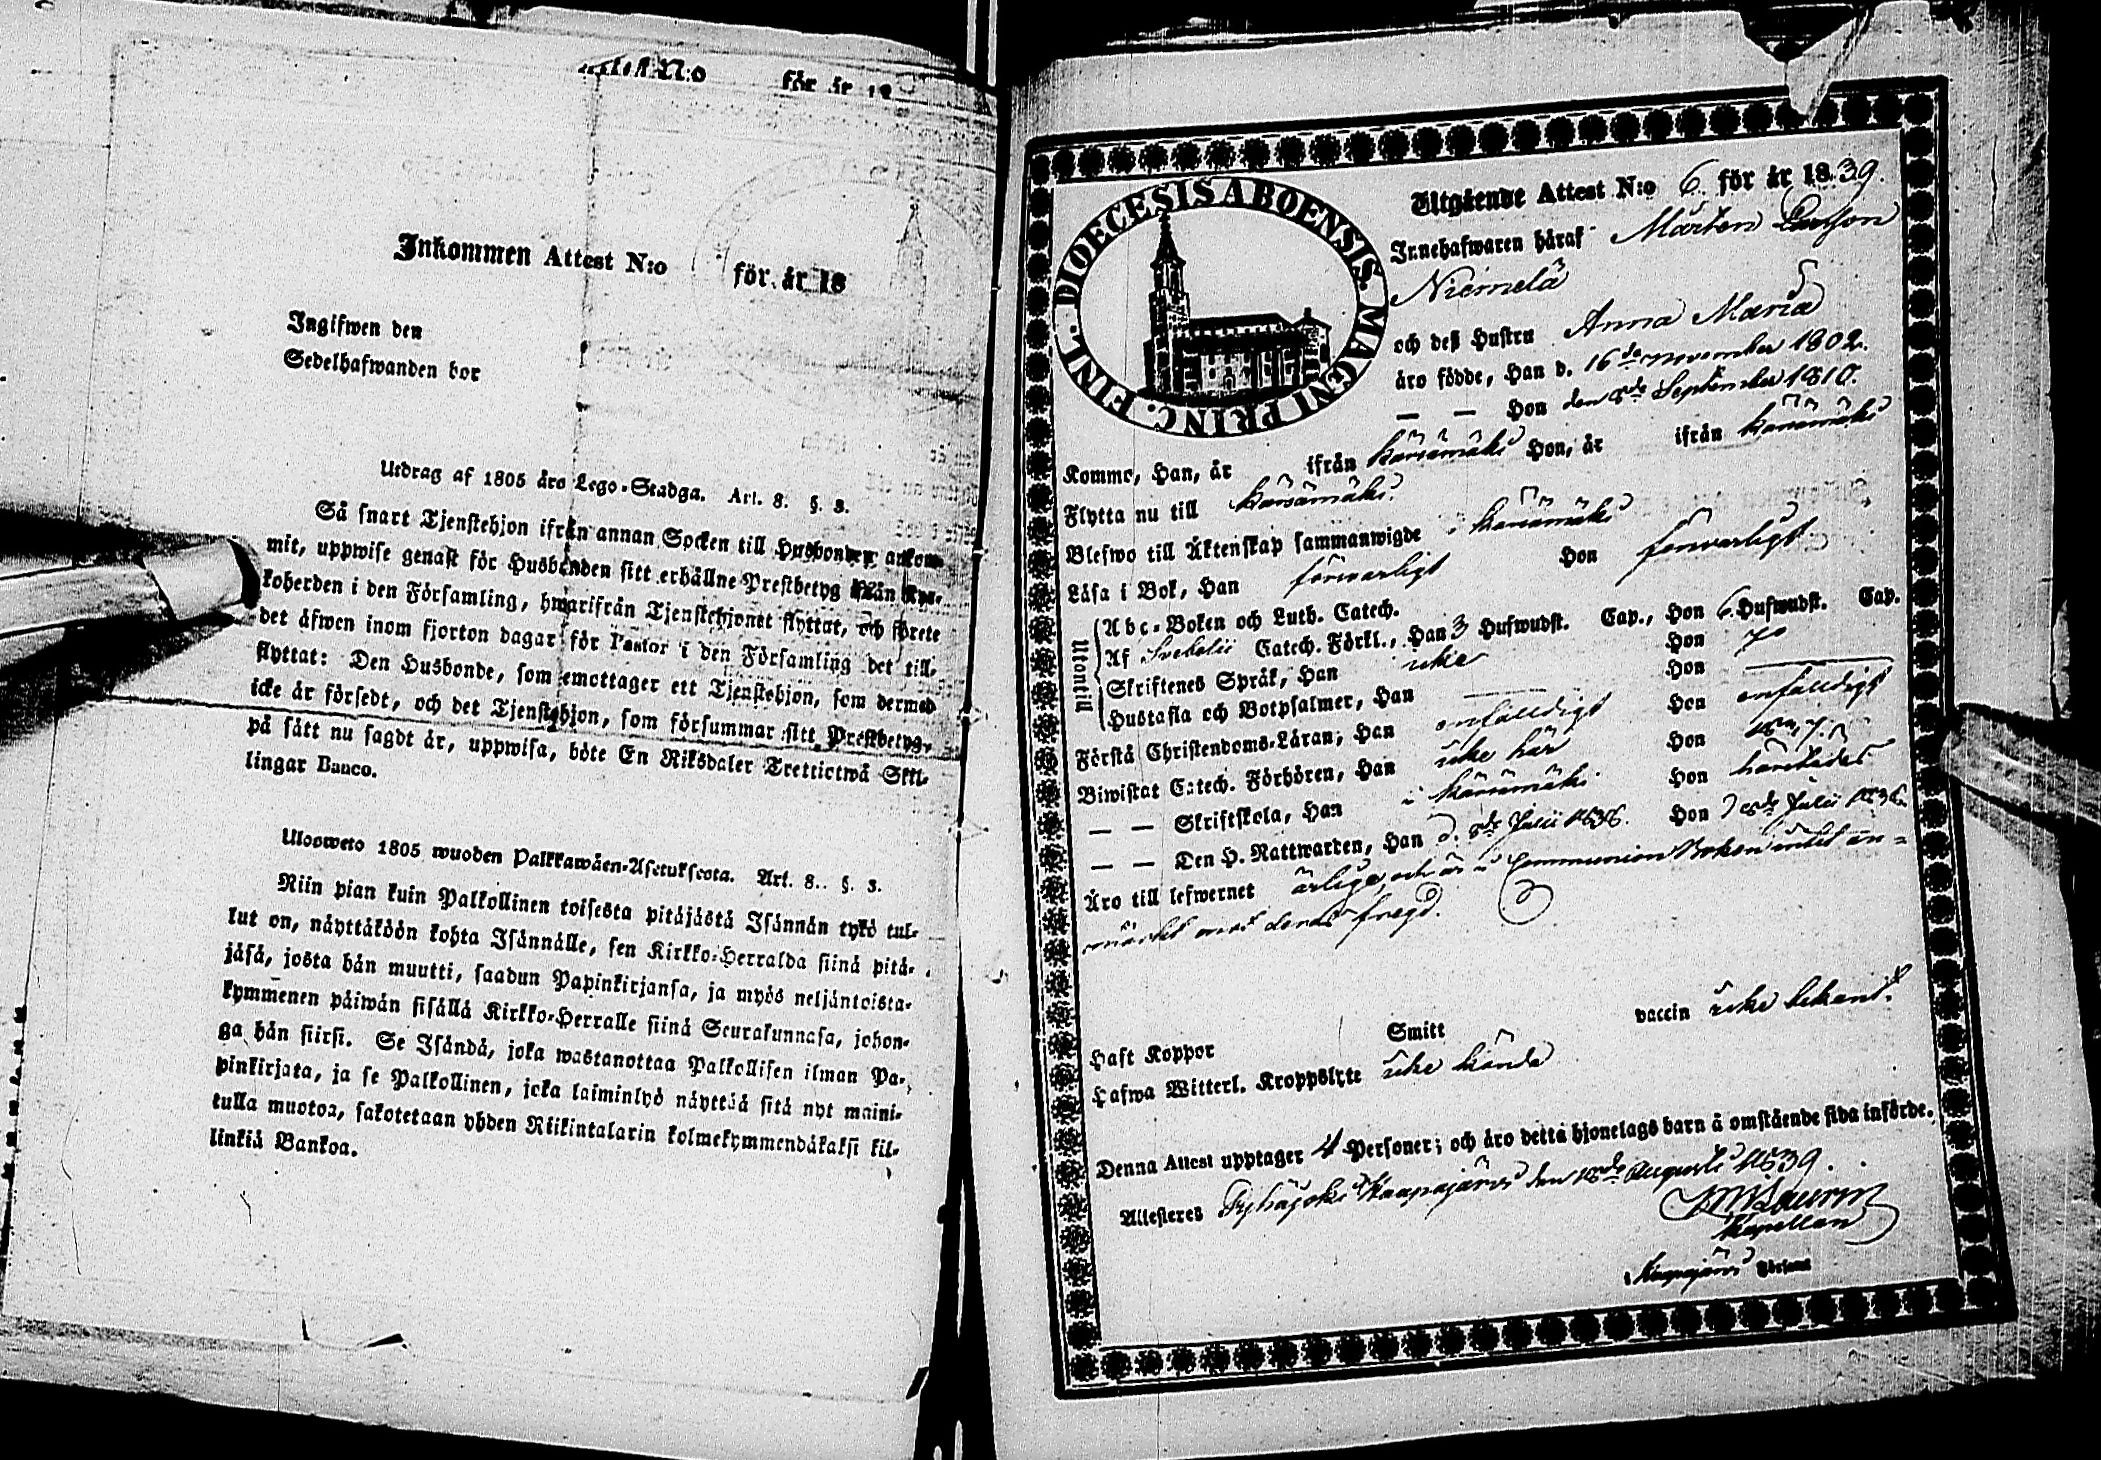 N:o för år 18
Inkommen Attest N:o för år 18
Ingifwen den
Sedelhafwanden bor
Utdrag af 1805 års Lego-Stadga. Art. 8. §. 3.
Så snart Tjenstehjon ifrån annan Socken till Husbonden ankom-
mit, uppwise genast för Husbonden sitt erhållne Prestbetyg från Kyr-
koherden i den Församling, hwarifrån Tjenstehjonet flyttat, och förete
det äfwen inom fjorton dagar för Pastor i den Församling det till-
flyttat: Den Husbonde, som emottager ett Tjenstehjon, som dermed
icke är försedt, och det Tjenstehjon, som försummar sitt Prestbetyg,
på sätt nu sagdt är, uppwisa, böte En Riksdaler Trettiotwå Skil-
lingar Banco.
Ulosweto 1805 wuoden Palkkawäen-Asetuksesta. Art. 8. §. 3.
Niin pian kuin Palkollinen toisesta pitäjästä Isännän tykö tul-
lut on, näyttäköön kohta Isännälle, sen Kirkko-Herralda siinä pitä-
jäsä, josta hän muutti, saadun Papinkirjansa, ja myös neljäntoista-
kymmenen päiwän sisällä Kirkko-Herralle siinä Seurakunnasa, johon-
ga hän siirsi. Se Isändä, joka wastanottaa Palkollisen ilman Pa-
pinkirjata, ja se Palkollinen, joka laiminlyö näyttää sitä nyt maini-
tulla muotoa, sakotetaan yhden Riikintalarin kolmekymmendäkaksi kil-
linkiä Bankoa.
DIOECESIS ABOENSIS. MAGNI PRINC. FINL.
Utgående Attest N:o 6. för år 1839.
Innehafwaren häraf Mårten Larsson
Niemelä
och deß Hustru Anna Maria
äro födde, Han d. 16de november 1802.
— — Hon den 8de September 1810.
Komne, Han, år ifrån Kärsämäki Hon, år ifrån Kärsämäki
Flytta nu till Kärsämäki.
Blefwo till Äktenskap sammanwigde i Kärsämäki
Läsa i Bok, Han försvarligt Hon försvarligt
Utantill
Abc-Boken och Luth. Catech.
Af Svebelii Catech. Förkl., Han 3 Hufwudst. Cap., Hon 6. Hufwudst. Cap.
Skriftenes Språk, Han icke Hon
Hustafla och Botpsalmer, Han Hon
Förstå Christendoms-Läran, Han enfalldigt Hon enfalldigt
Biwistat Catech. Förhören, Han icke här Hon
— — Skriftskola, Han i Kärsämäki Hon härstädes
— — Den H. Nattwarden, Han d. 8de Julii 1838. Hon d 8de Julii 1838.
Äro till lefwernet ärlige, och är i Communion Boken intet an-
märkt mot deras fregd.
Haft Koppor Smitt vaccin icke bekant.
Hafwa Witterl. Kroppslyte icke kända
Denna Attest upptager 4 Personer; och äro detta hjonelags barn å omstående sida införde.
Attesteras Pyhäjoki Haapajärvi den 18de Augusti 1839.
Kapellan
i Haapajärvi Församl